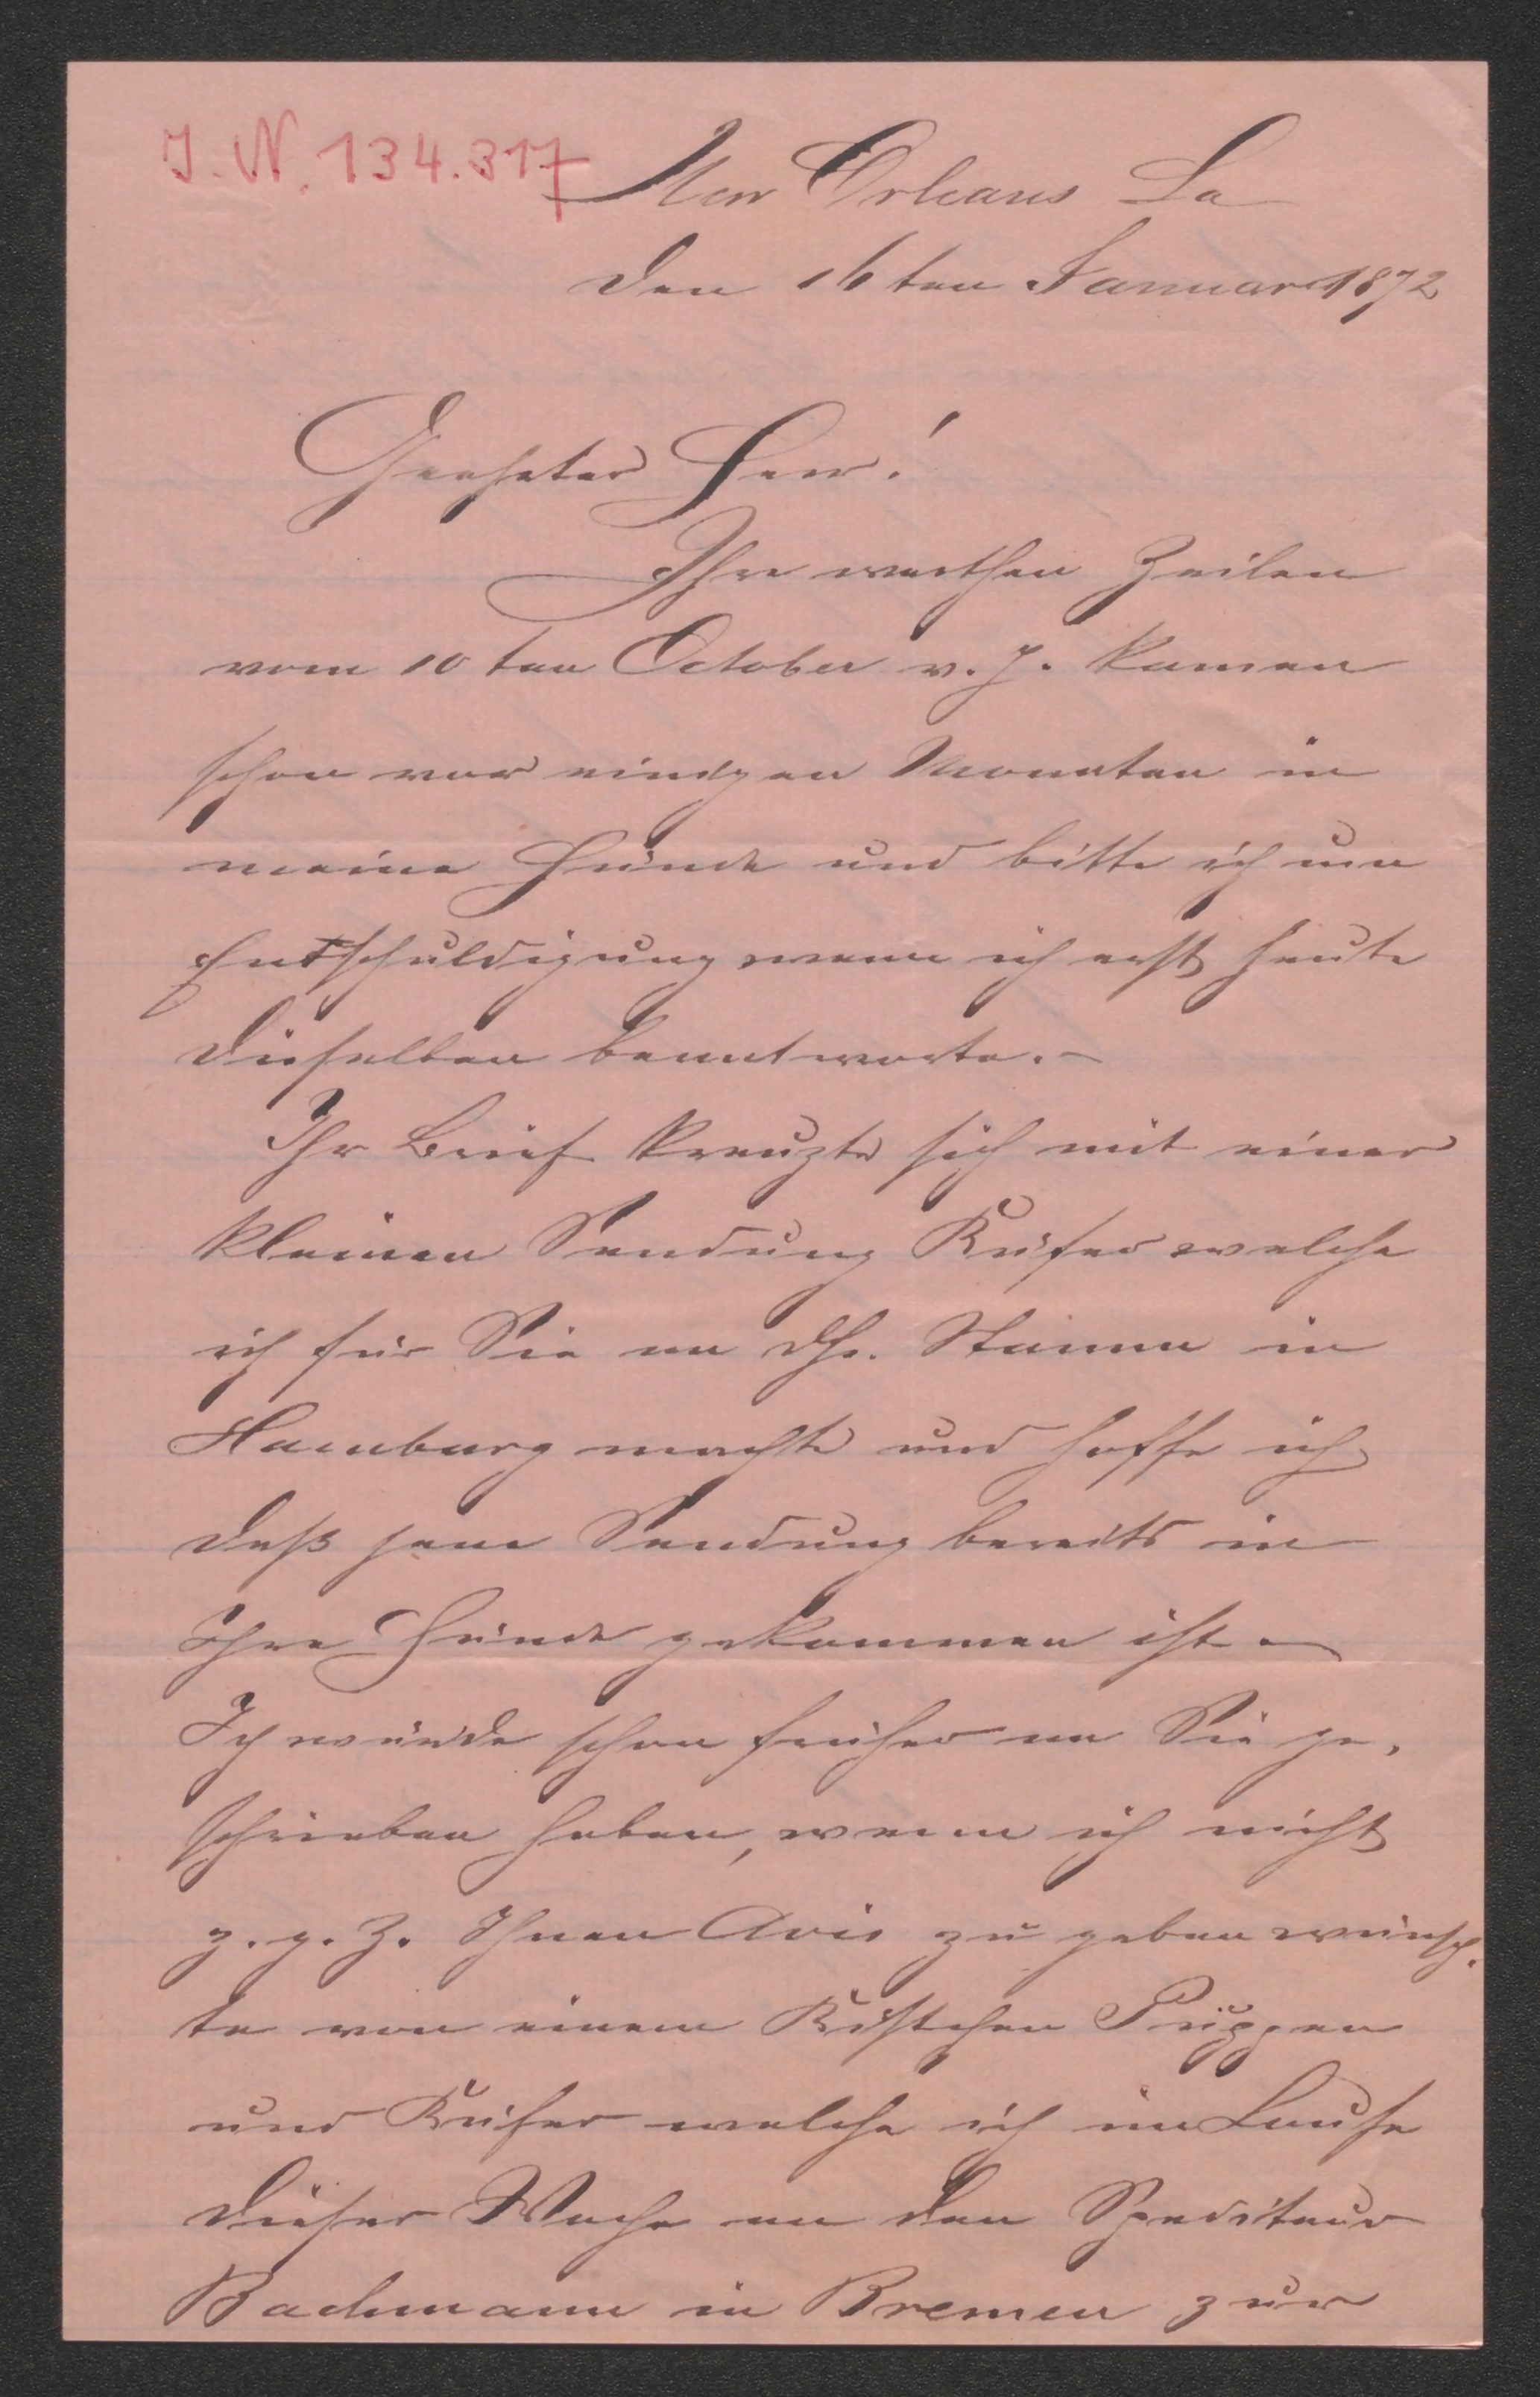 I. N. 134.317
New Orleans La
den 16ten Januar 1872
Geehrter Herr!
Ihre werthen Zeilen
vom 10ten October v. J. kamen
schon vor einigen Monaten in
meine Hände und bitte ich um
Entschuldigung wenn ich erst heute
dieselben beantworte. -
Ihr Brief kreuzte sich mit einer
kleinen Sendung Käfer welche
ich für Sie an Hr. Stamm in
Hamburg machte und hoffe ich
daß jene Sendung bereits in
Ihre Hände gekommen ist. -
Ich würde schon früher an Sie ge-
schrieben haben, wenn ich nicht
z. g. Z. Ihnen Avis zu geben wünsch-
te von einem Kistchen Puppen
und Käfer welche ich im Laufe
dieser Woche an den Spediteur
Bachmann in Bremen zur